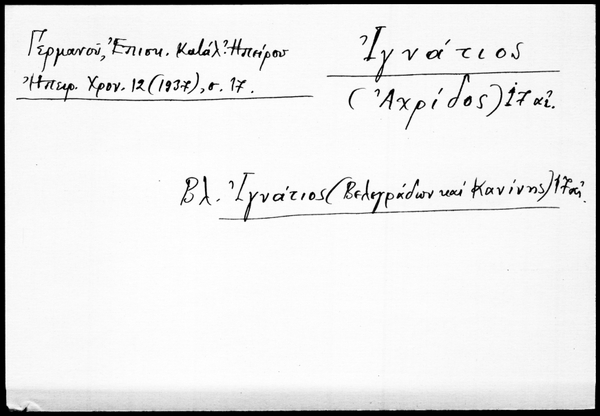 Γερμανοῦ, Ἐπισκ. Κατάλ. Ἠπείρου
Ἠπειρ. Χρον. 12 (1937), σ. 17.
Ἰγνάτιος
(Ἀχρίδος) 17 αἰ.
Βλ. Ἰγνάτιος (Βελεγράδων καί Κανίνης) 17 αἰ.